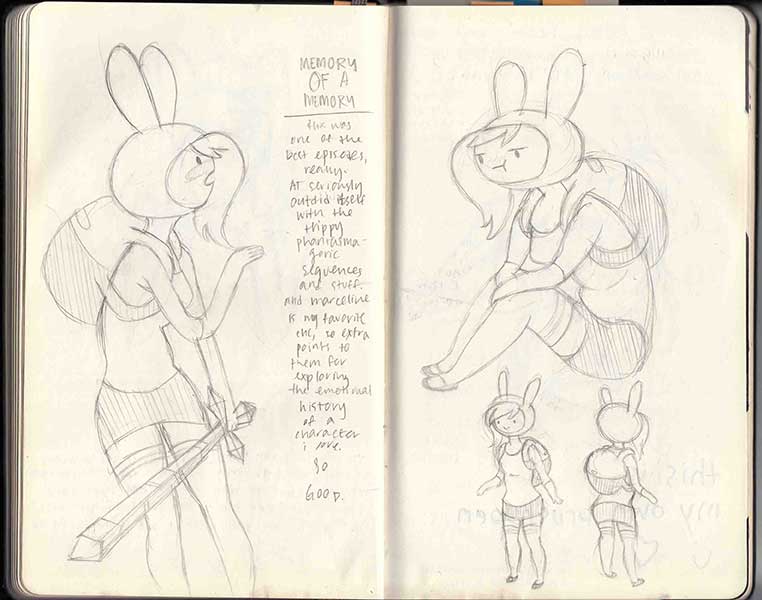 MEMORY
OF A
MEMORY
this was
one of the
best episodes,
really.
AT seriously
outdid itself
with the
trippy
phantasma-
goric
sequences
and stuff.
and marceline
is my favorite
chc, so extra
points to
them for
exploring
the emotional
history
of a
character
i love.
SO
GOOD.
this is
my own
pen